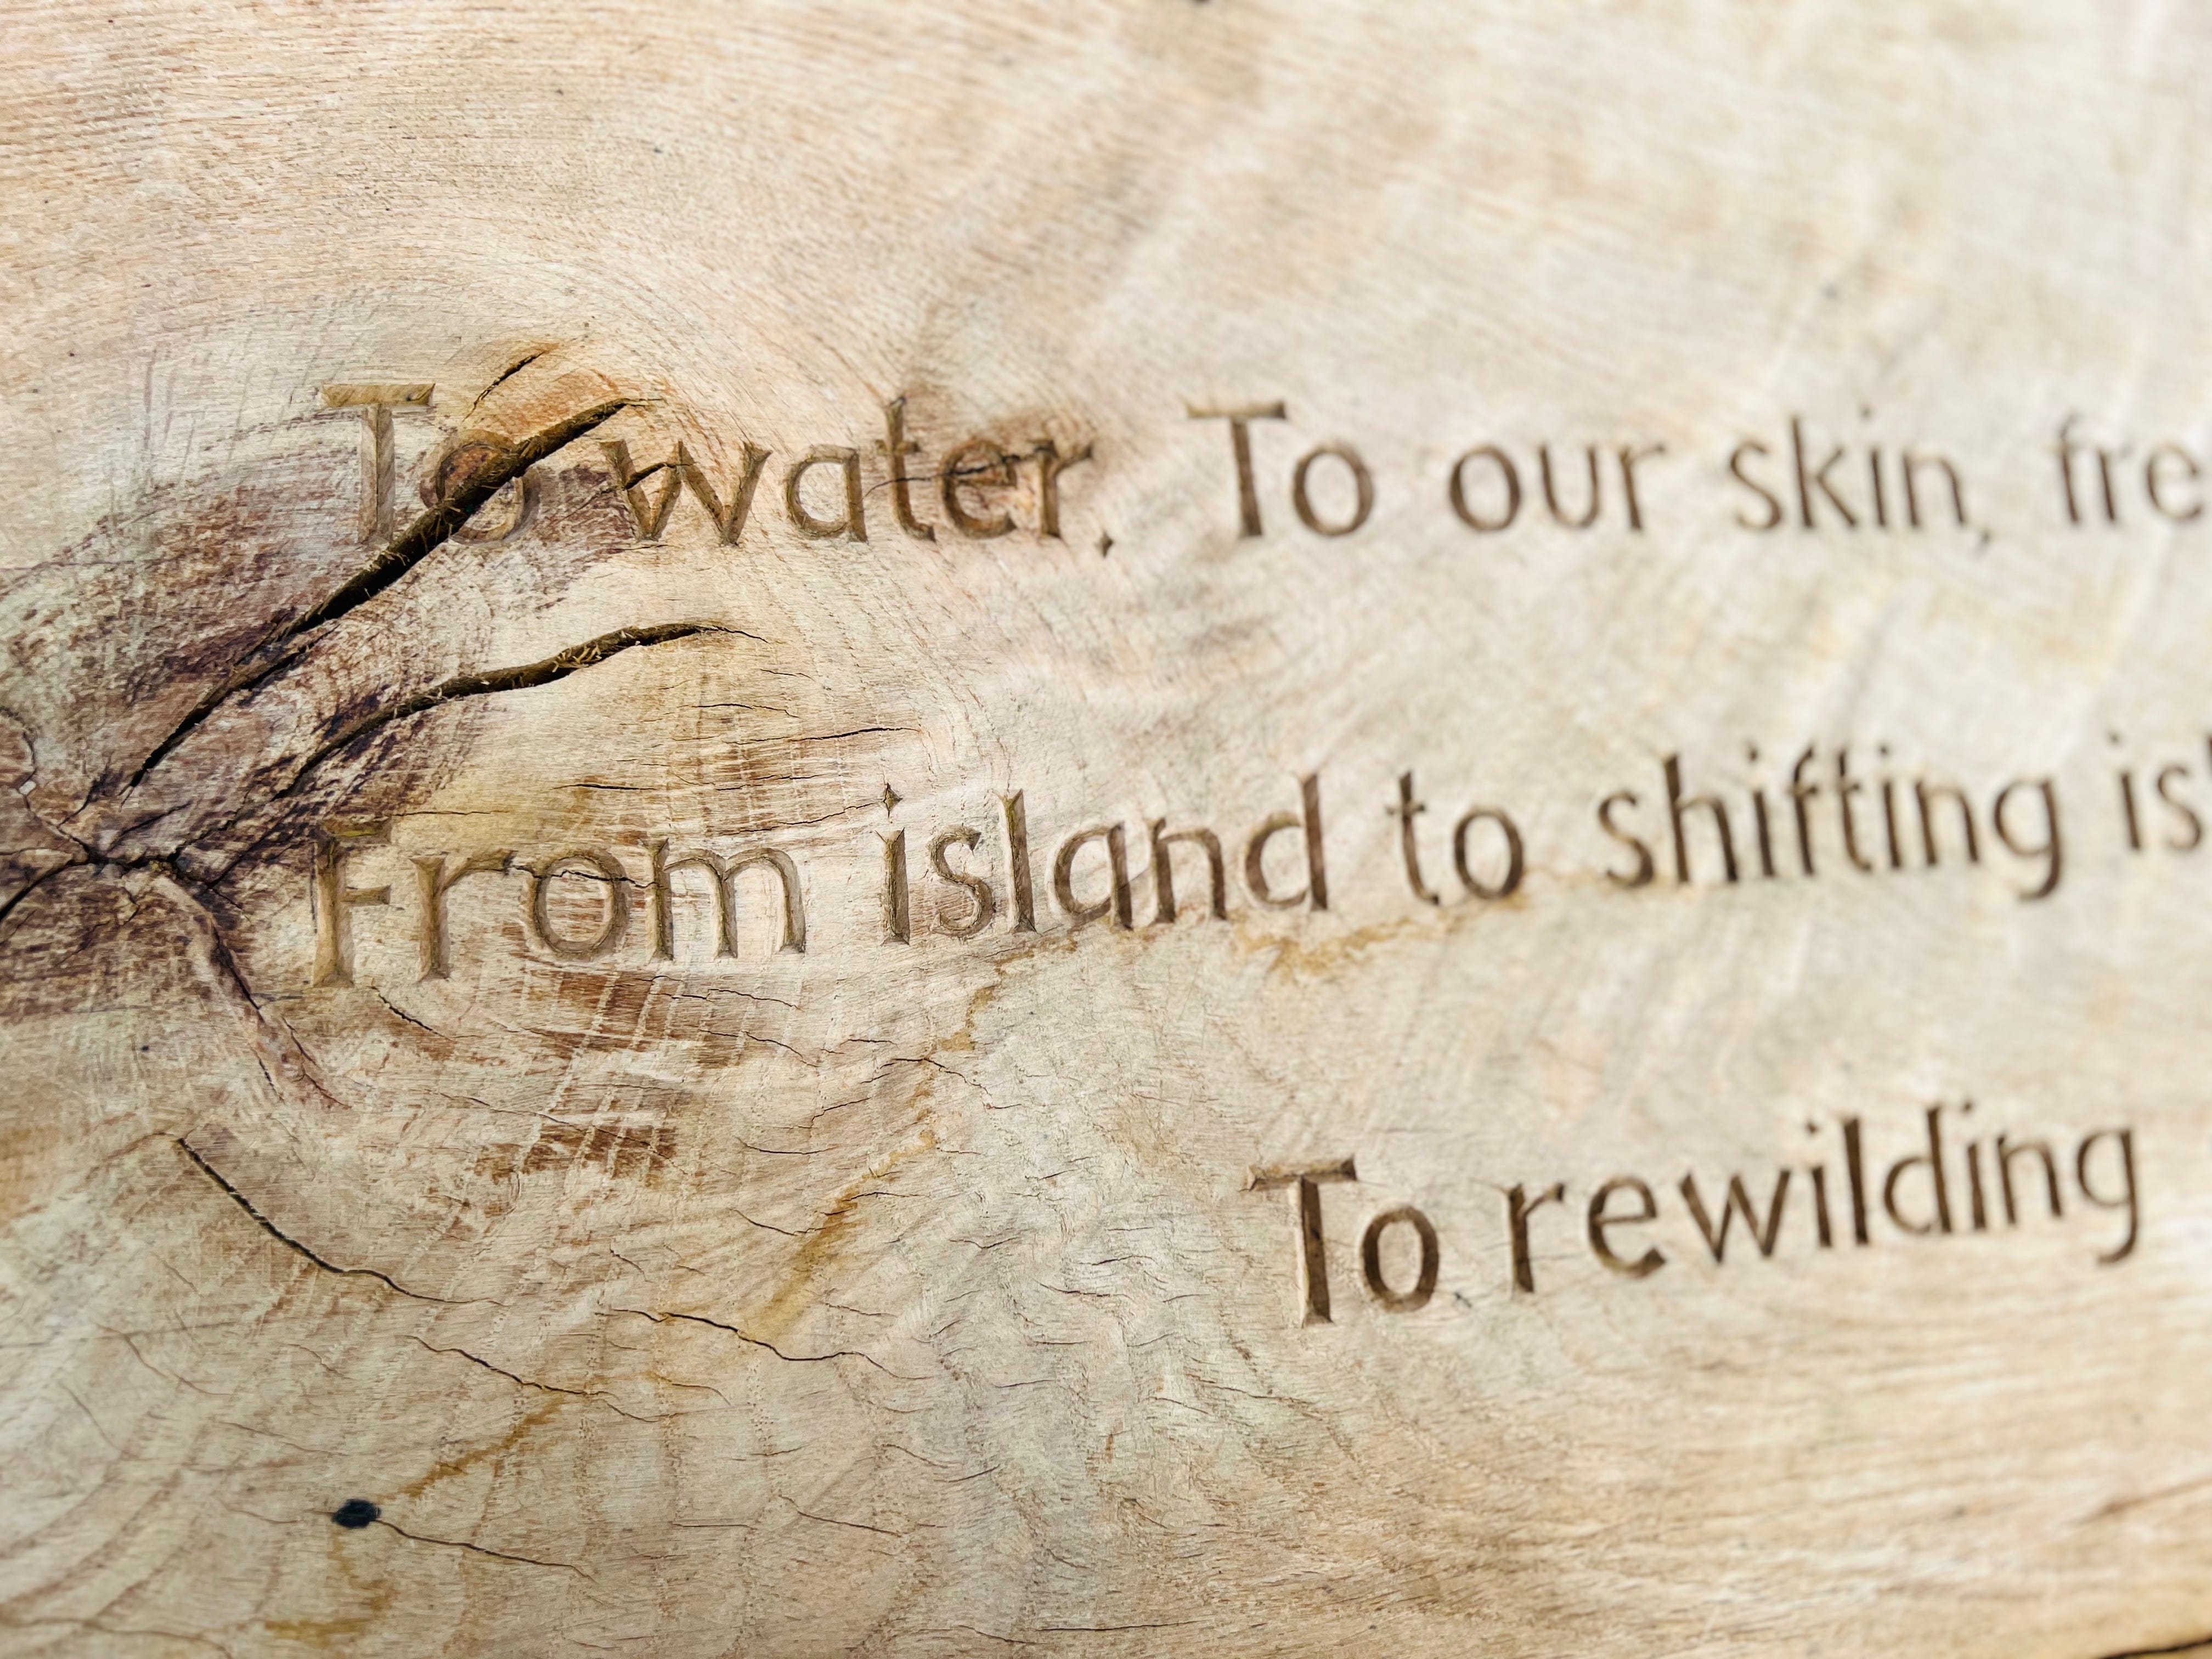 To water. To our skin, fre
From island to shifting isl
To rewilding